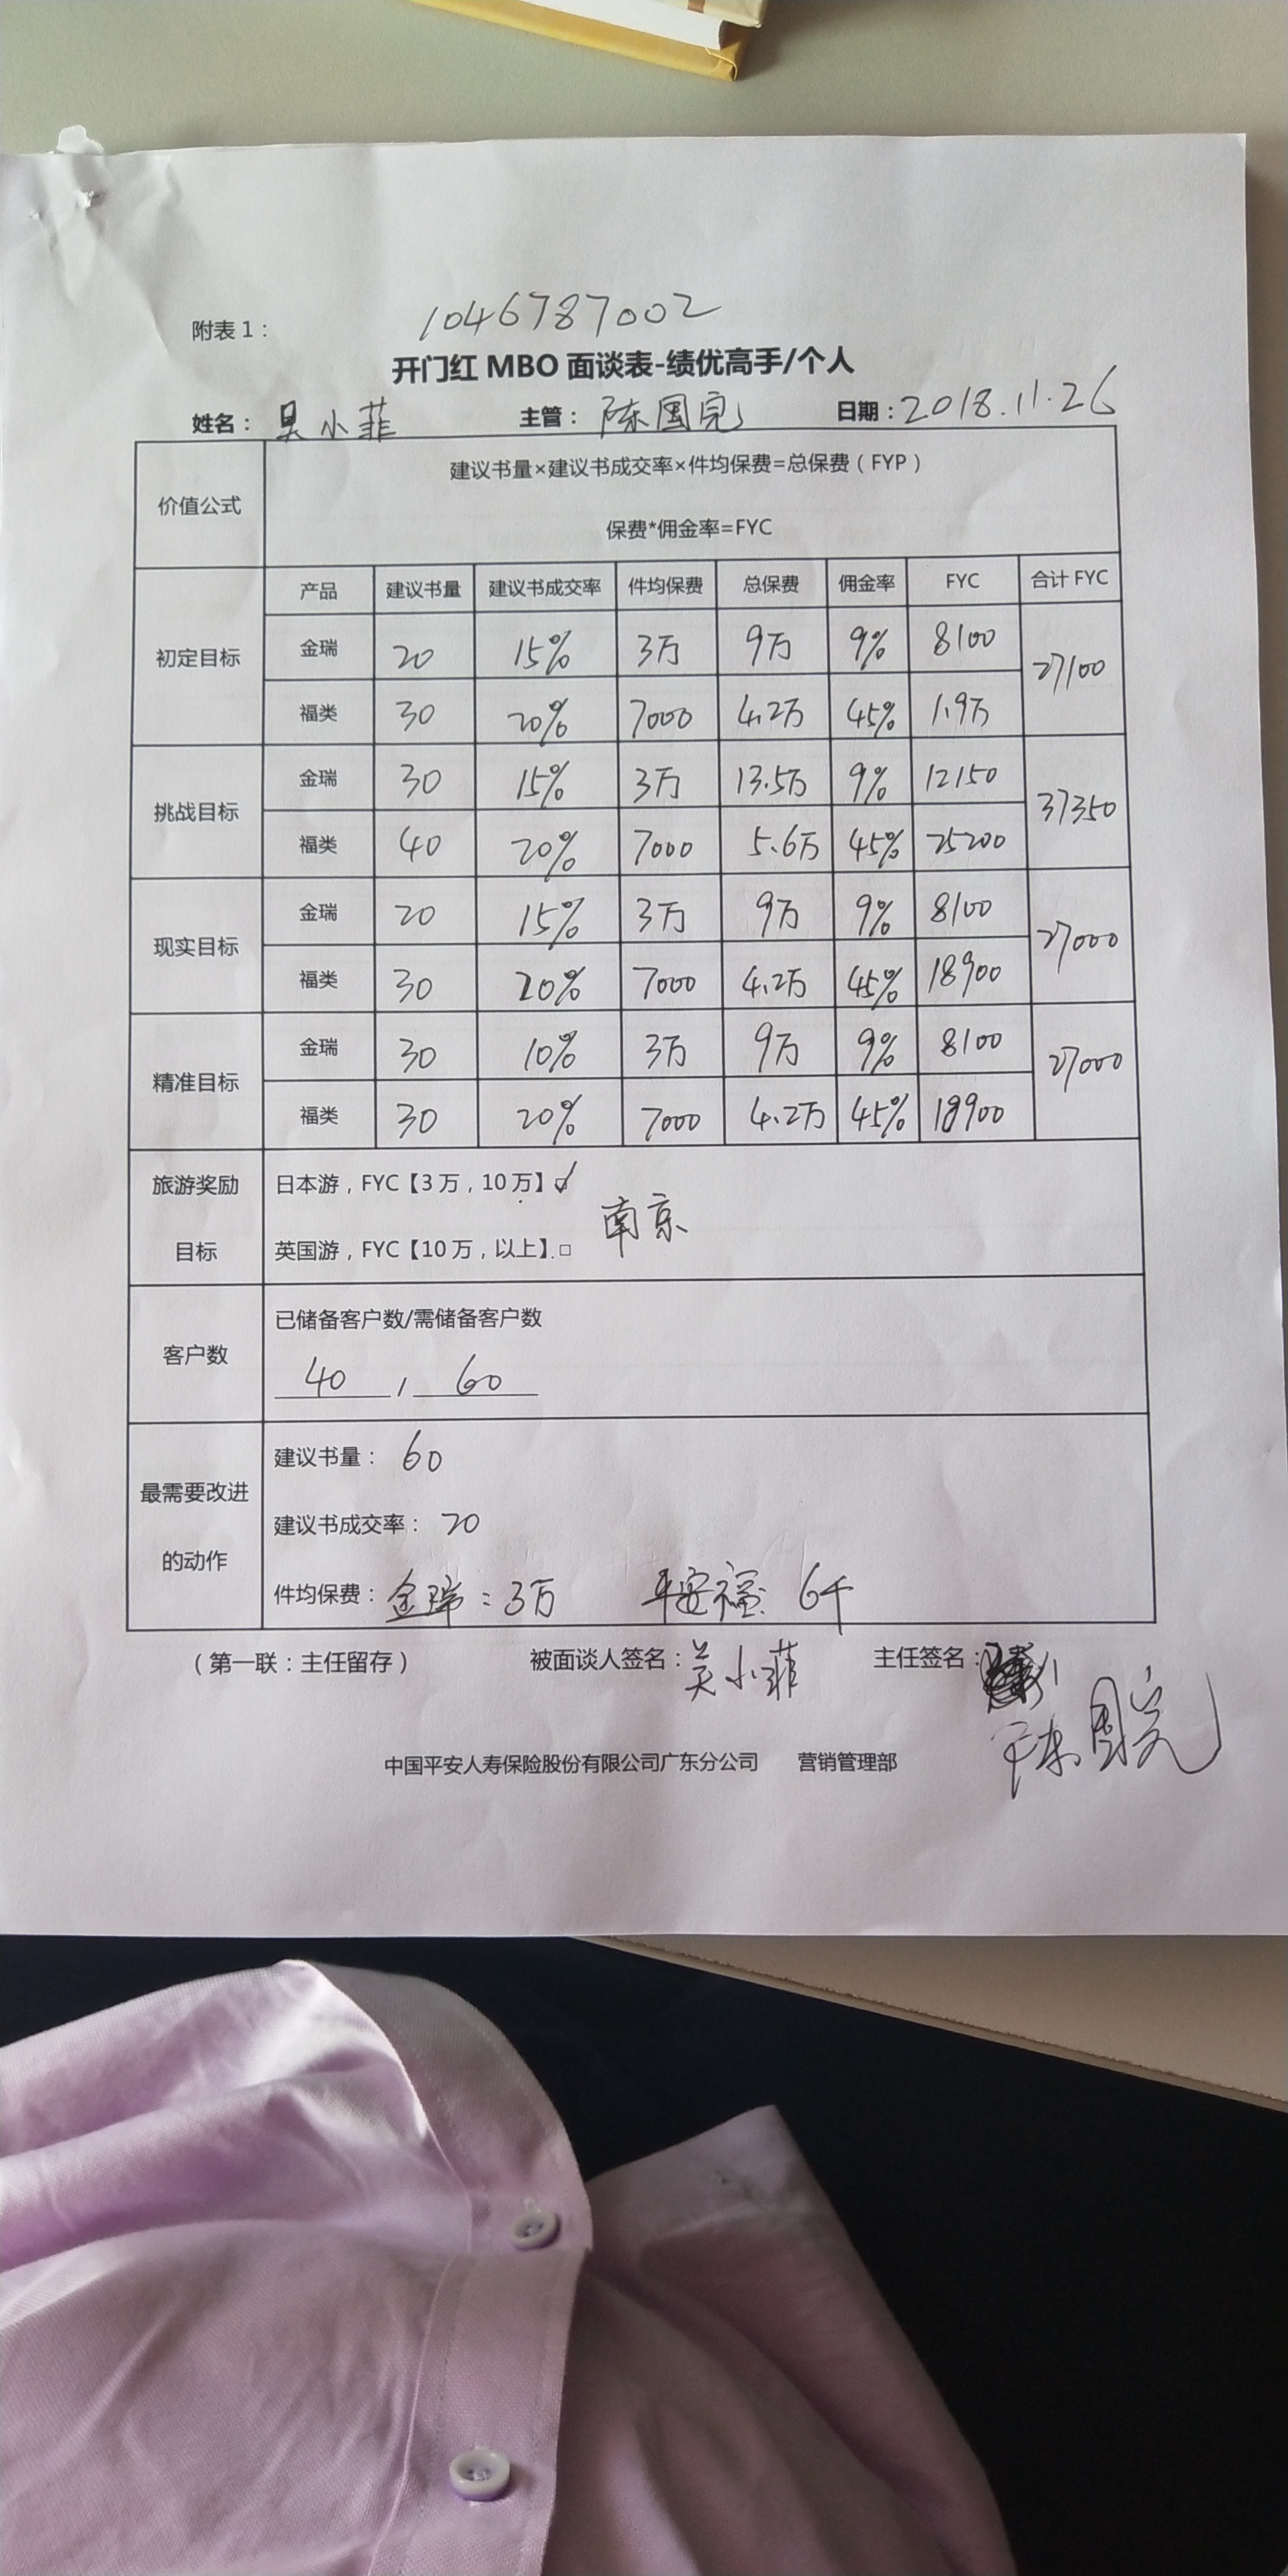 1046787002
附表1：
开门红 MBO 面谈表-绩优高手/个人
姓名： 吴小菲 主管： 陈国完 日期：2018.11.26
价值公式 建议书量×建议书成交率×件均保费=总保费（FYP）
保费*佣金率=FYC
产品 建议书量 建议书成交率 件均保费 总保费 佣金率 FYC 合计 FYC
初定目标 金瑞 20 15% 3万 9万 9% 8100 27100
福类 30 20% 7000 4.2万 45% 1.9万
挑战目标 金瑞 30 15% 3万 13.5万 9% 12150 37350
福类 40 20% 7000 5.6万 45% 25200
现实目标 金瑞 20 15% 3万 9万 9% 8100 27000
福类 30 20% 7000 4.2万 45% 18900
精准目标 金瑞 30 10% 3万 9万 9% 8100 27000
福类 30 20% 7000 4.2万 45% 18900
旅游奖励目标 日本游，FYC【3万，10万】☑
南京
英国游，FYC【10万，以上】□
客户数 已储备客户数/需储备客户数
40 / 60
最需要改进的动作 建议书量： 60
建议书成交率： 20
件均保费：金瑞：3万 平安福：6千
（第一联：主任留存） 被面谈人签名：吴小菲 主任签名：
陈国完
中国平安人寿保险股份有限公司广东分公司 营销管理部